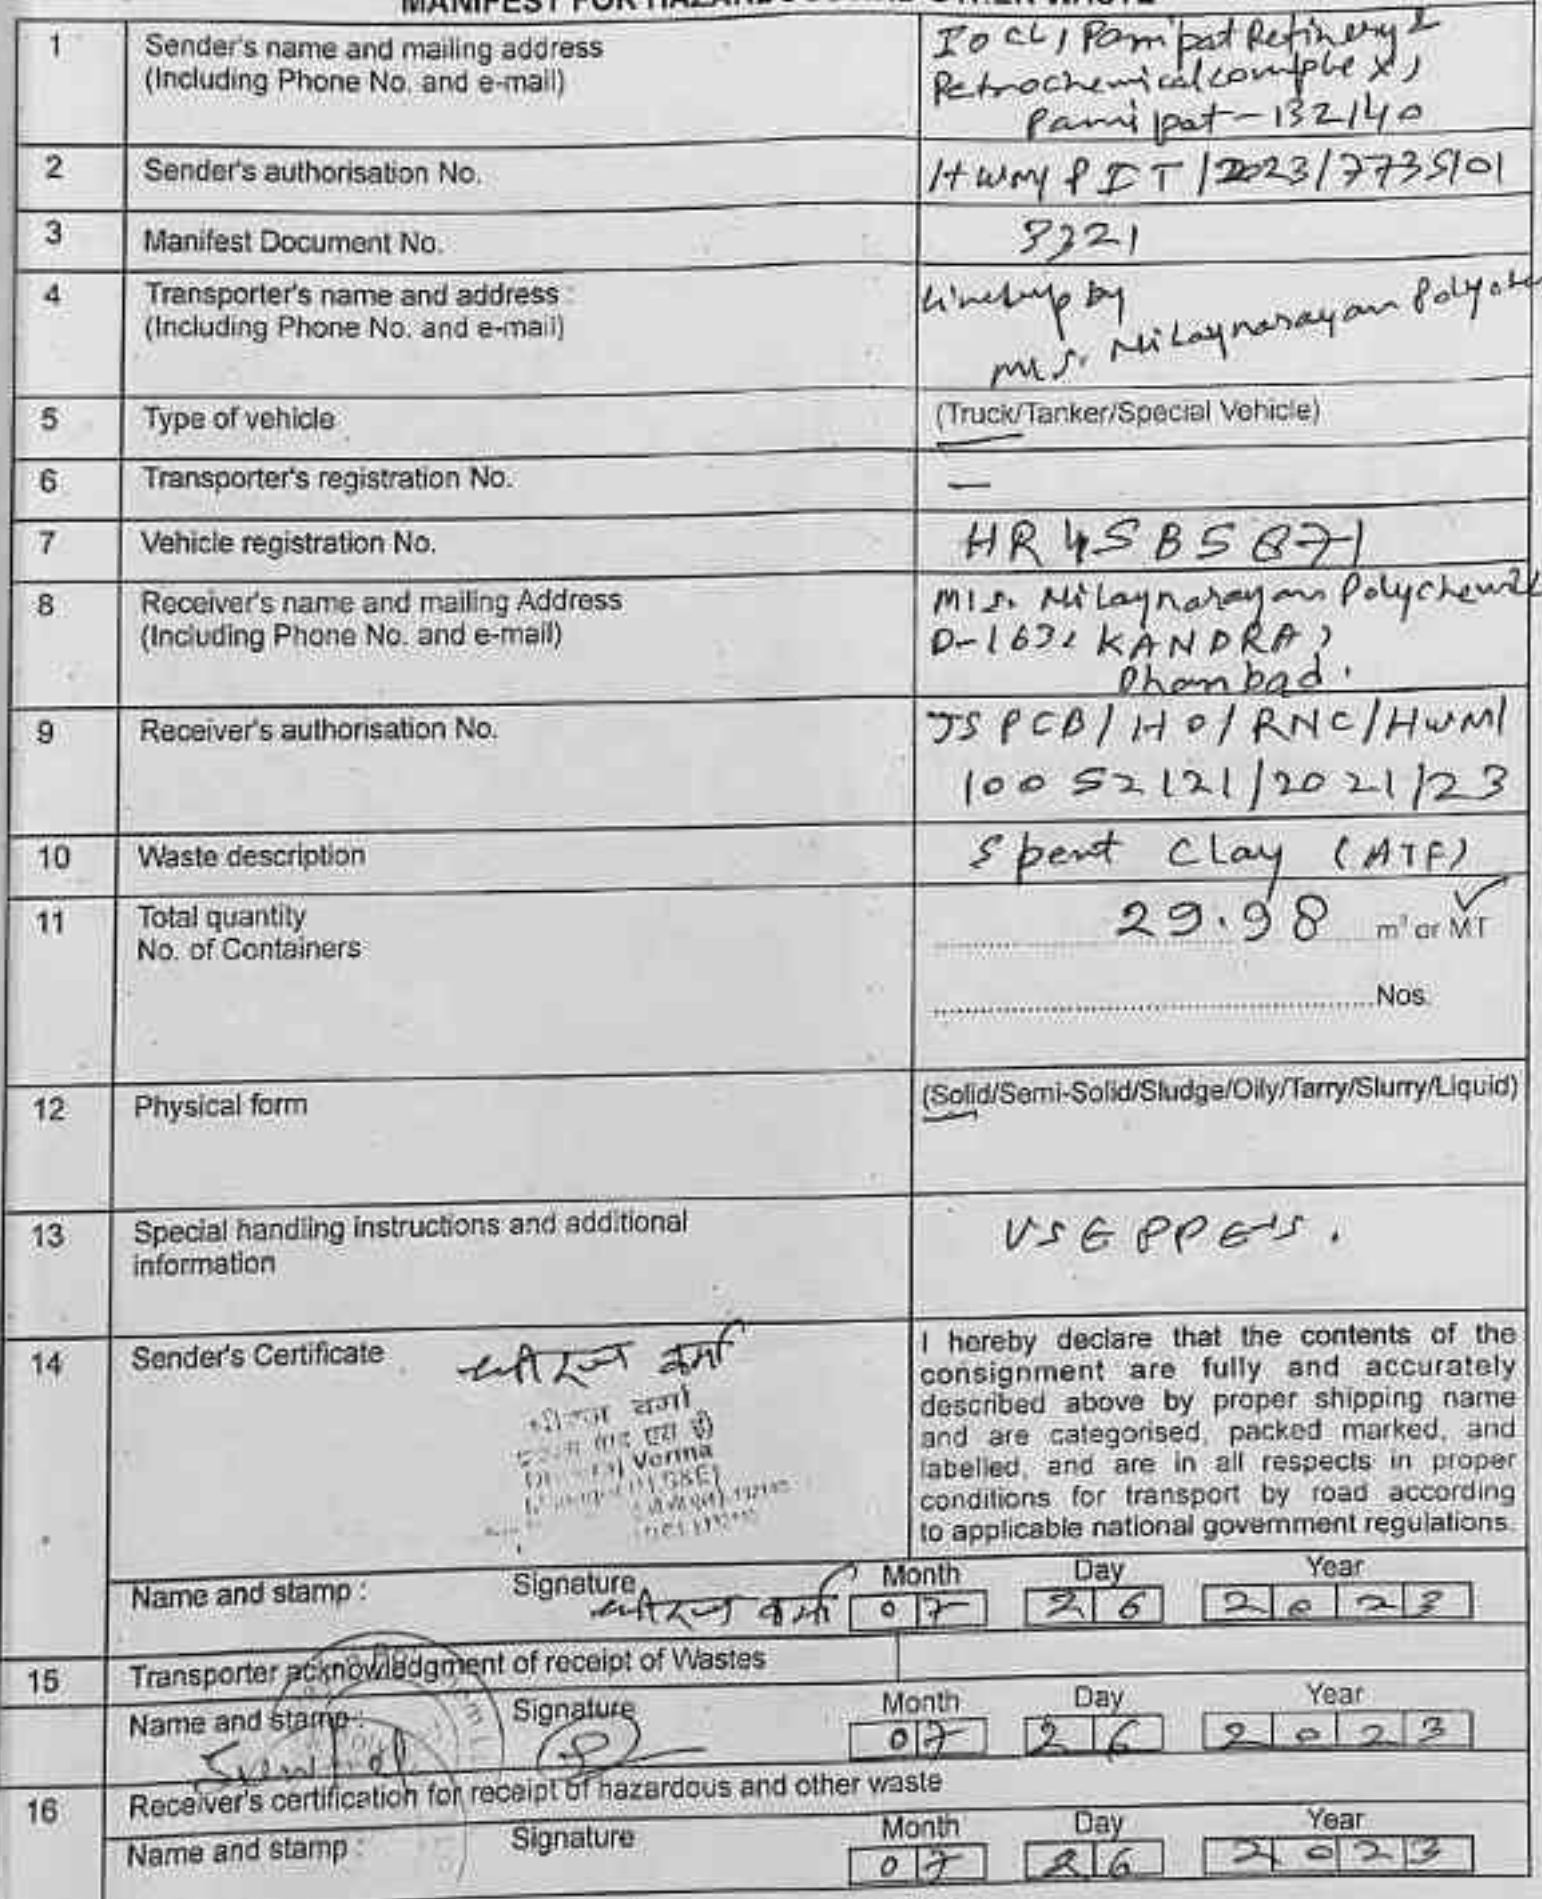 MANIFEST FOR HAZARDOUS AND OTHER WASTE
1 Sender's name and mailing address
(Including Phone No. and e-mail)
IOCL, Panipat Refinery &
Petrochemical complex,
Panipat - 132140
2 Sender's authorisation No.
HWM/PIT/2023/7735101
3 Manifest Document No.
3321
4 Transporter's name and address :
(Including Phone No. and e-mail)
Lineup by
M/s. Nilaynarayan
5 Type of vehicle
(Truck/Tanker/Special Vehicle)
6 Transporter's registration No.
—
7 Vehicle registration No.
HR45B5871
8 Receiver's name and mailing Address
(Including Phone No. and e-mail)
M/s. Nilaynarayan
D-163, KANDRA,
Dhanbad.
9 Receiver's authorisation No.
JSPCB/HO/RNC/HWM/
10052121/2021/23
10 Waste description
Spent Clay (ATF)
11 Total quantity
No. of Containers
29.98 m³ or MT ✓
Nos.
12 Physical form
(Solid/Semi-Solid/Sludge/Oily/Tarry/Slurry/Liquid)
13 Special handling instructions and additional
information
USE PPE'S.
14 Sender's Certificate
धीरज वर्मा
धीरज वर्मा
Verma
I hereby declare that the contents of the
consignment are fully and accurately
described above by proper shipping name
and are categorised, packed marked, and
labelled, and are in all respects in proper
conditions for transport by road according
to applicable national government regulations.
Name and stamp : Signature धीरज वर्मा Month Day Year
07 26 2023
15 Transporter acknowledgment of receipt of Wastes
Name and stamp : Signature Month Day Year
07 26 2023
16 Receiver's certification for receipt of hazardous and other waste
Name and stamp : Signature Month Day Year
07 26 2023